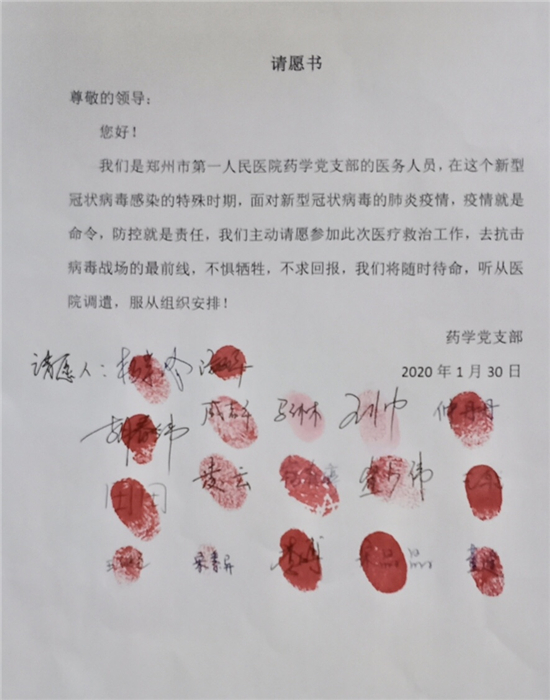 请愿书
尊敬的领导：
您好！
我们是郑州市第一人民医院药学党支部的医务人员，在这个新型
冠状病毒感染的特殊时期，面对新型冠状病毒的肺炎疫情，疫情就是
命令，防控就是责任，我们主动请愿参加此次医疗救治工作，去抗击
病毒战场的最前线，不惧牺牲，不求回报，我们将随时待命，听从医
院调遣，服从组织安排！
药学党支部
请愿人：
2020 年 1 月 30 日
仲丹丹
田田 凌云
晶晶